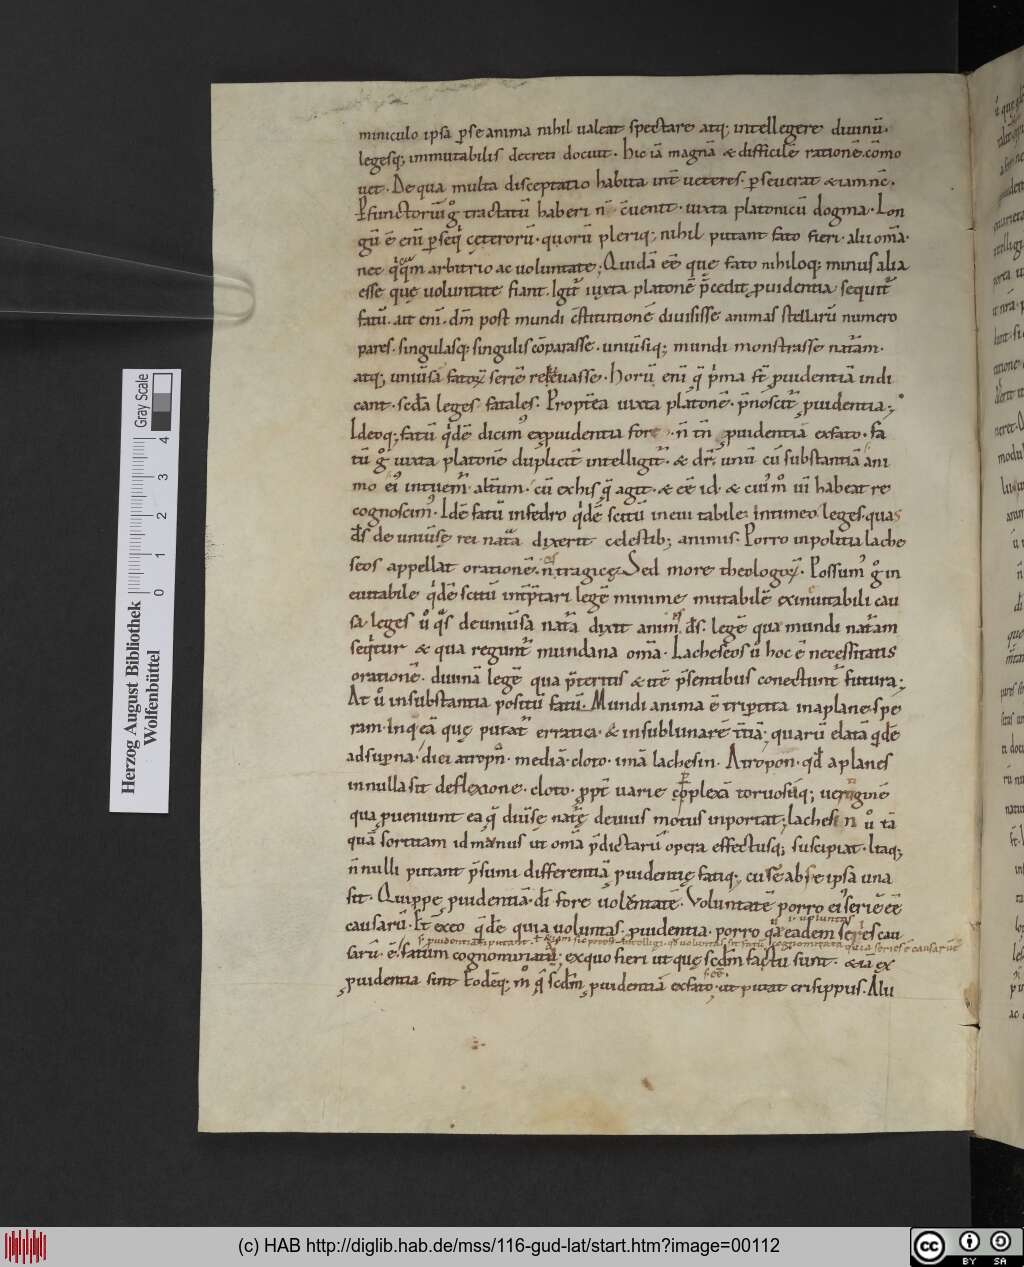 miniculo ipsa ꝑse anima nihil ualeat spectare atq; intellegere diuinū.
legesq; immutabilis decreti docuit. hic iā magnā & difficilē rationē cōmo
uet. De qua multa disceptatio habita int̄ ueteres. ꝑseuerat & iam nc̄.
tractatū haberi n̄ c̄uenit. iuxta platonicū dogma. Lon
gū ē eni ꝑseq̍ cęterorū. quorū pleriq; nihil putant fato fieri. alii om̄a.
nec arbitrio ac uoluntate. Quidā eē que fato nihiloq; minus alia
esse quę uoluntate fiant. Igit̄ iuxta platonē p̄cedit ꝓuidentia sequit̄
fatū. ait eni. dm̄ post mundi c̄stitutionē diuisisse animas stellarū numero
pares. singulasq; singulis cōparasse. uniūsiq; mundi monstrasse nat̄am.
atq; uniūsā fatoꝝ seriē reuasse. Horū eni q̄ p̄ma st̄ ꝓuidentiā indi
cant. sc̄da leges fatales. Propt̄ea iuxta platonē. p̄nōscit̄ ꝓuidentia;
Ideoq; fatū q̍dē dicim᾿ ex ꝓuidentia fore. n̄ tn̄ ꝓuidentiā ex fato. fa
tū gͦ iuxta platonē duplicit̄ intelligit̄. & dr̄ unū cū substantiā ani
mo ei᾿ intuem̄. alt̄um. cū ex his q̄ agit. & eē id. & cui᾿mͦ ui habeat re
cognoscim᾿. Idē fatū in fedro q̍dē scitū ineui tabile. in timeo leges. quas
d̄s de uniūsę rei nat̄a dixerit celestib; animis. Porro in politia lache
seos appellat orationē. n̄ tragicę. Sed more theologoꝝ. Possum᾿ gͦ in
euitabile q̍dē scitū int̄p̄tari legē minime mutabilē ex ineuitabili cau
sa. leges uͦ qͣs de uniūsa nat̄a dixit animis d̄s. legē qua mundi nat̄am
seq̍tur & qua regunt̄ mundana om̄a. Lacheseos ū hoc ē necessitatis
orationē. diuinā legē qua p̄teritis & itē p̄sentibus conectunt̄ futura;
At uͦ in substantia positū fatū. Mundi anima ē tripertita in aplane. spe
ram. Inq̄ eā quę putat̄ erratica. & in sublunarē t̄tiā; quarū elatā q̍dē
ad suꝑna. dici atropn̄. mediā. cloto. imā lachesin. Atropon. qd̄ a planes
in nulla sit deflexione. cloto. ꝓpt̄ uarie ꝑplexā toruosq; uertiginē
qua ꝓueniunt ea q̄ diūse nat̄ę deuius motus inportat; lachesin uͦ tā
quā sortitam id munus ut om̄a p̄dictarū opera effectusq; suscipiat. Itaq;
n̄ nulli putant p̄sumi differentiā ꝓuidentię fatiq; cū se ab se ipsa una
sit. Quippe ꝓuidentiā. di fore uolūntatē. Voluntatē porro ei᾿ seriē eē
causarū. Et ex eo q̍dē quia uoluntas. ꝓuidentia. porro qͣ eadem series cau
sarū. ē. fatum cognominatū; ex quo fieri ut quę sc̄dm factū sunt. & iā ex
ꝓuidentia sint Eodēq; mͦ q̄ sc̄dm ꝓuidentiā ex fato. ut putat crisippus. Alii
Gray Scale
0 1 2 3 4
Herzog August Bibliothek
Wolfenbüttel
(c) HAB http://diglib.hab.de/mss/116-gud-lat/start.htm?image=00112
cc BY SA